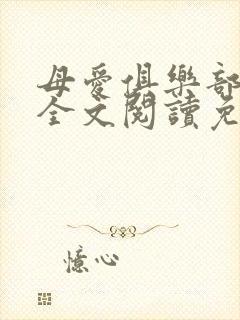 母愛俱樂部
全文閱讀免
憶心